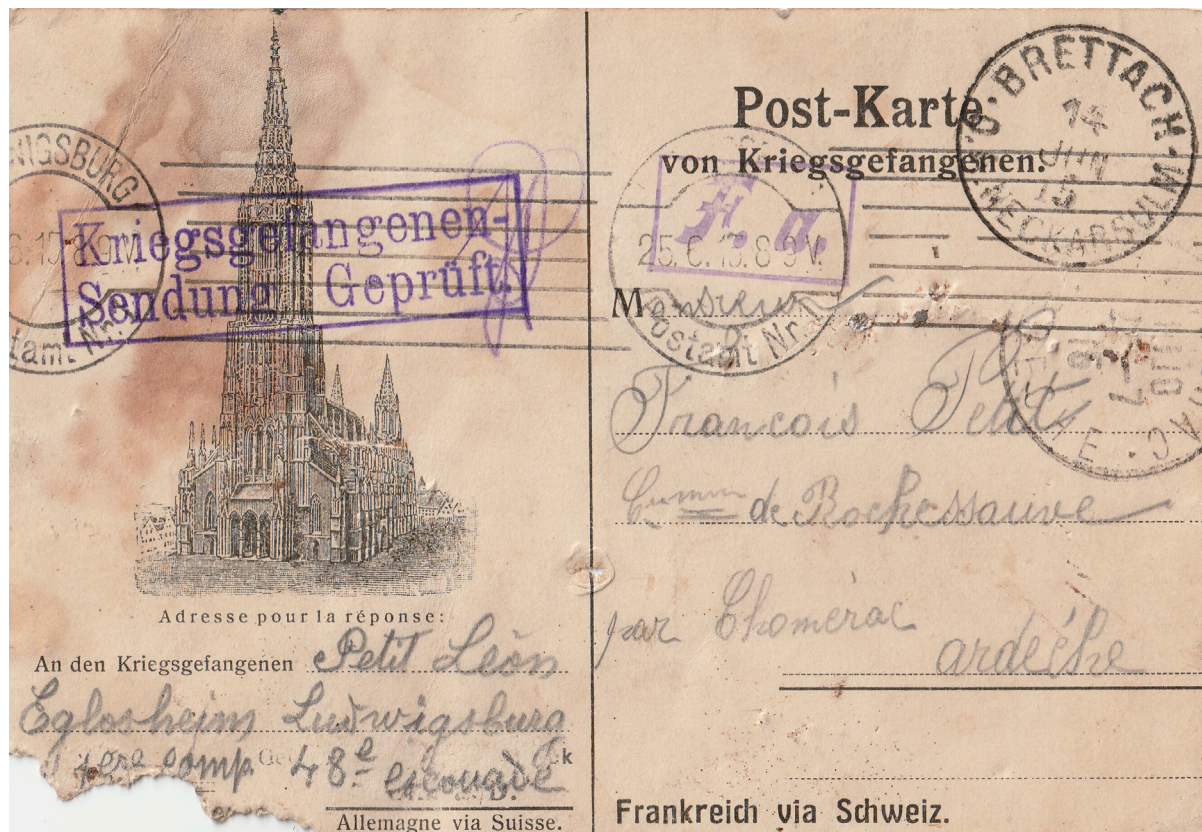 Kriegsgefangenen-
Sendung Geprüft.
Adresse pour la réponse:
An den Kriegsgefangenen Petit Léon
Eglosheim Ludwigsburg
1ere comp. 48e escouade
Allemagne via Suisse.
Post-Karte
von Kriegsgefangenen.
BRETTACH
14
JUN
15
NECKARSULM
F. a.
25.6.15.8-9V.
Postamt Nr. 1
Monsieur
Francois Petit
de Rochessauve
par Chomérac
ardéche
Frankreich via Schweiz.